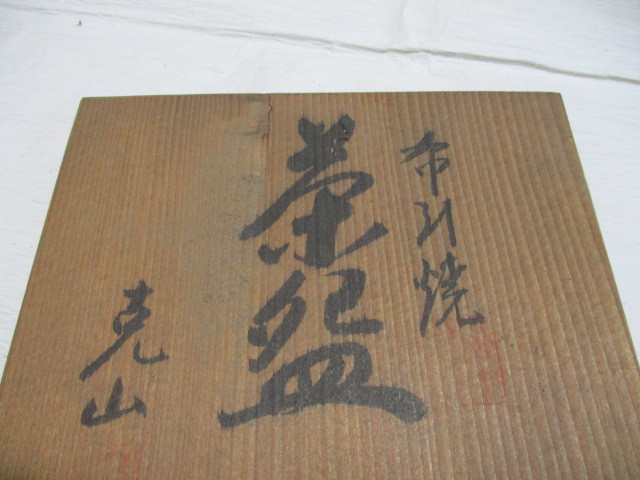 布引焼
茶盌
克山